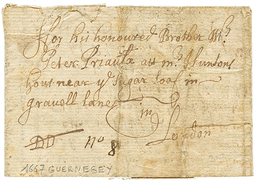 For his honoured Brother Mr
Peter Priaulx att mr Hunsons
hous near ye Sugar loaf in
gravell lane
in
London
DD No 8
1667 GUERNESEY